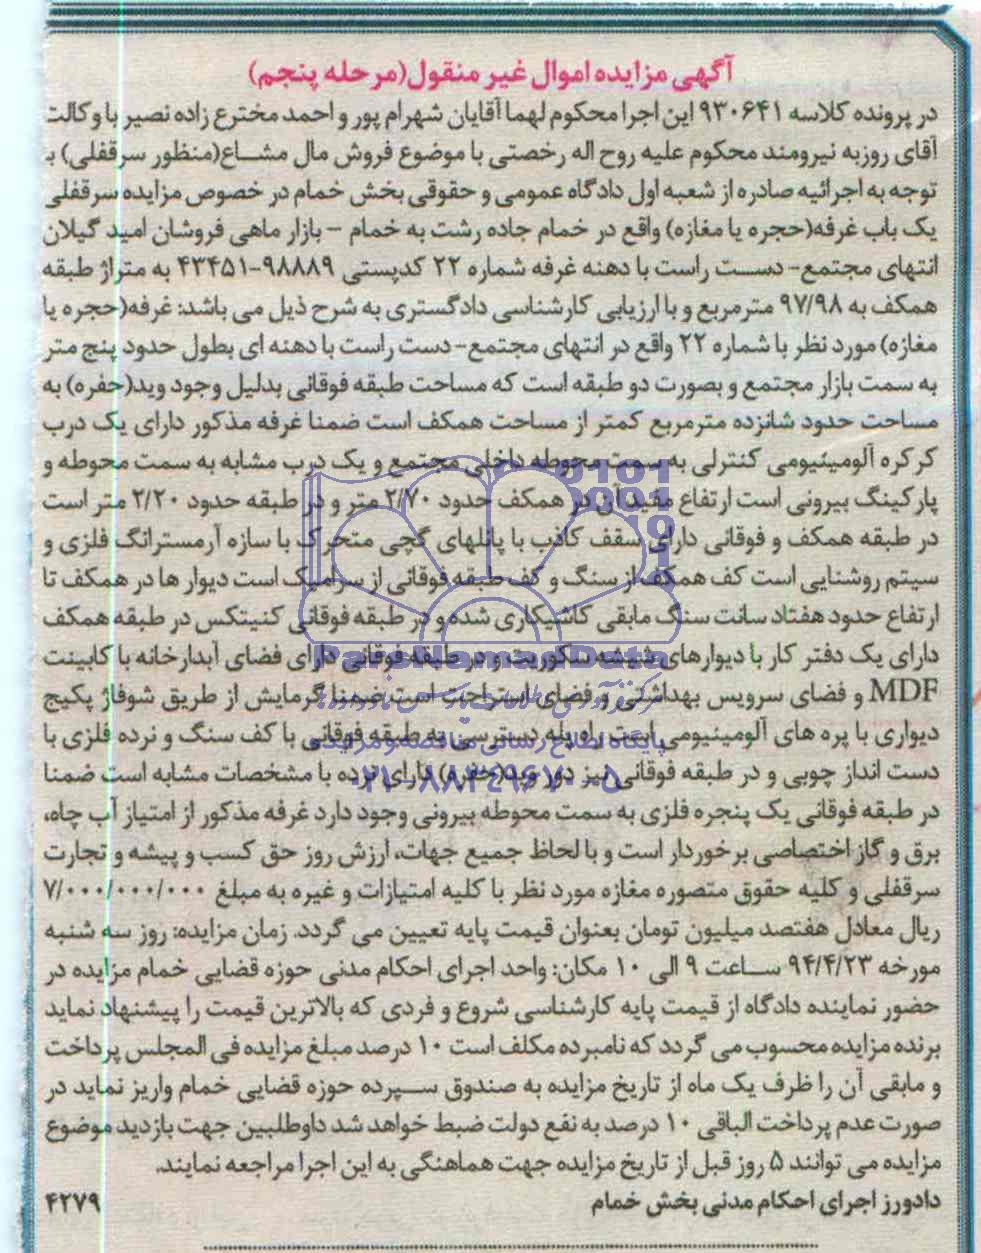 آگهی مزایده اموال غیر منقول(مرحله پنجم)
در پرونده کلاسه ۹۳۰۶۴۱ این اجرا محکوم لهما آقایان شهرام پور و احمد مخترع زاده نصیر با وکالت
آقای روزبه نیرومند محکوم علیه روح اله رخصتی با موضوع فروش مال مشاع(منظور سرقفلی) ب
توجه به اجرائیه صادره از شعبه اول دادگاه عمومی و حقوقی بخش خمام در خصوص مزایده سرقفلی
یک باب غرفه(حجره یا مغازه) واقع در خمام جاده رشت به خمام - بازار ماهی فروشان امید گیلان
انتهای مجتمع- دست راست با دهنه غرفه شماره ۲۲ کدپستی ۹۸۸۸۹-۴۳۴۵۱ به متراژ طبقه
همکف به ۹۷/۹۸ مترمربع و با ارزیابی کارشناسی دادگستری به شرح ذیل می باشد: غرفه(حجره یا
مغازه) مورد نظر با شماره ۲۲ واقع در انتهای مجتمع-دست راست با دهنه ای بطول حدود پنج متر
به سمت بازار مجتمع و بصورت دو طبقه است که مساحت طبقه فوقانی بدلیل وجود وید(حفره) به
مساحت حدود شانزده مترمربع کمتر از مساحت همکف است ضمنا غرفه مذکور دارای یک درب
کرکره آلومینیومی کنترلی به سمت محوطه داخلی مجتمع و یک درب مشابه به سمت محوطه و
پارکینگ بیرونی است ارتفاع مفید آن در همکف حدود ۲/۷۰ متر و در طبقه حدود ۲/۲۰ متر است
در طبقه همکف و فوقانی دارای سقف کاذب با پانلهای گچی متحرک با سازه آرمسترانگ فلزی و
سیتم روشنایی است کف همکف از سنگ و کف طبقه فوقانی از سرامیک است دیوار ها در همکف تا
ارتفاع حدود هفتاد سانت سنگ مابقی کاشیکاری شده و در طبقه فوقانی کنیتکس در طبقه همکف
دارای یک دفتر کار با دیوارهای شیشه سکوریت و در طبقه فوقانی دارای فضای آبدارخانه با کابینت
MDF و فضای سرویس بهداشتی و فضای استراحت است ضمنا گرمایش از طریق شوفاژ پکیج
دیواری با پره های آلومینیومی است راه پله دسترسی به طبقه فوقانی با کف سنگ و نرده فلزی با
دست انداز چوبی و در طبقه فوقانی نیز دور وید(حفره) دارای نرده با مشخصات مشابه است ضمنا
در طبقه فوقانی یک پنجره فلزی به سمت محوطه بیرونی وجود دارد غرفه مذکور از امتیاز آب چاه،
برق و گاز اختصاصی برخوردار است و با لحاظ جمیع جهات، ارزش روز حق کسب و پیشه و تجارت
سرقفلی و کلیه حقوق متصوره مغازه مورد نظر با کلیه امتیازات و غیره به مبلغ ۷/۰۰۰/۰۰۰/۰۰۰
ریال معادل هفتصد میلیون تومان بعنوان قیمت پایه تعیین می گردد. زمان مزایده: روز سه شنبه
مورخه ۹۴/۴/۲۳ ساعت ۹ الی ۱۰ مکان: واحد اجرای احکام مدنی حوزه قضایی خمام مزایده در
حضور نماینده دادگاه از قیمت پایه کارشناسی شروع و فردی که بالاترین قیمت را پیشنهاد نماید
برنده مزایده محسوب می گردد که نامبرده مکلف است ۱۰ درصد مبلغ مزایده فی المجلس پرداخت
و مابقی آن را ظرف یک ماه از تاریخ مزایده به صندوق سپرده حوزه قضایی خمام واریز نماید در
صورت عدم پرداخت الباقی ۱۰ درصد به نفع دولت ضبط خواهد شد داوطلبین جهت بازدید موضوع
مزایده می توانند ۵ روز قبل از تاریخ مزایده جهت هماهنگی به این اجرا مراجعه نمایند.
دادورز اجرای احکام مدنی بخش خمام
۴۲۷۹
ParsNamadData
پایگاه اطلاع رسانی مناقصه و مزایده
۰۲۱-۸۸۳۴۹۶۷۰-۵